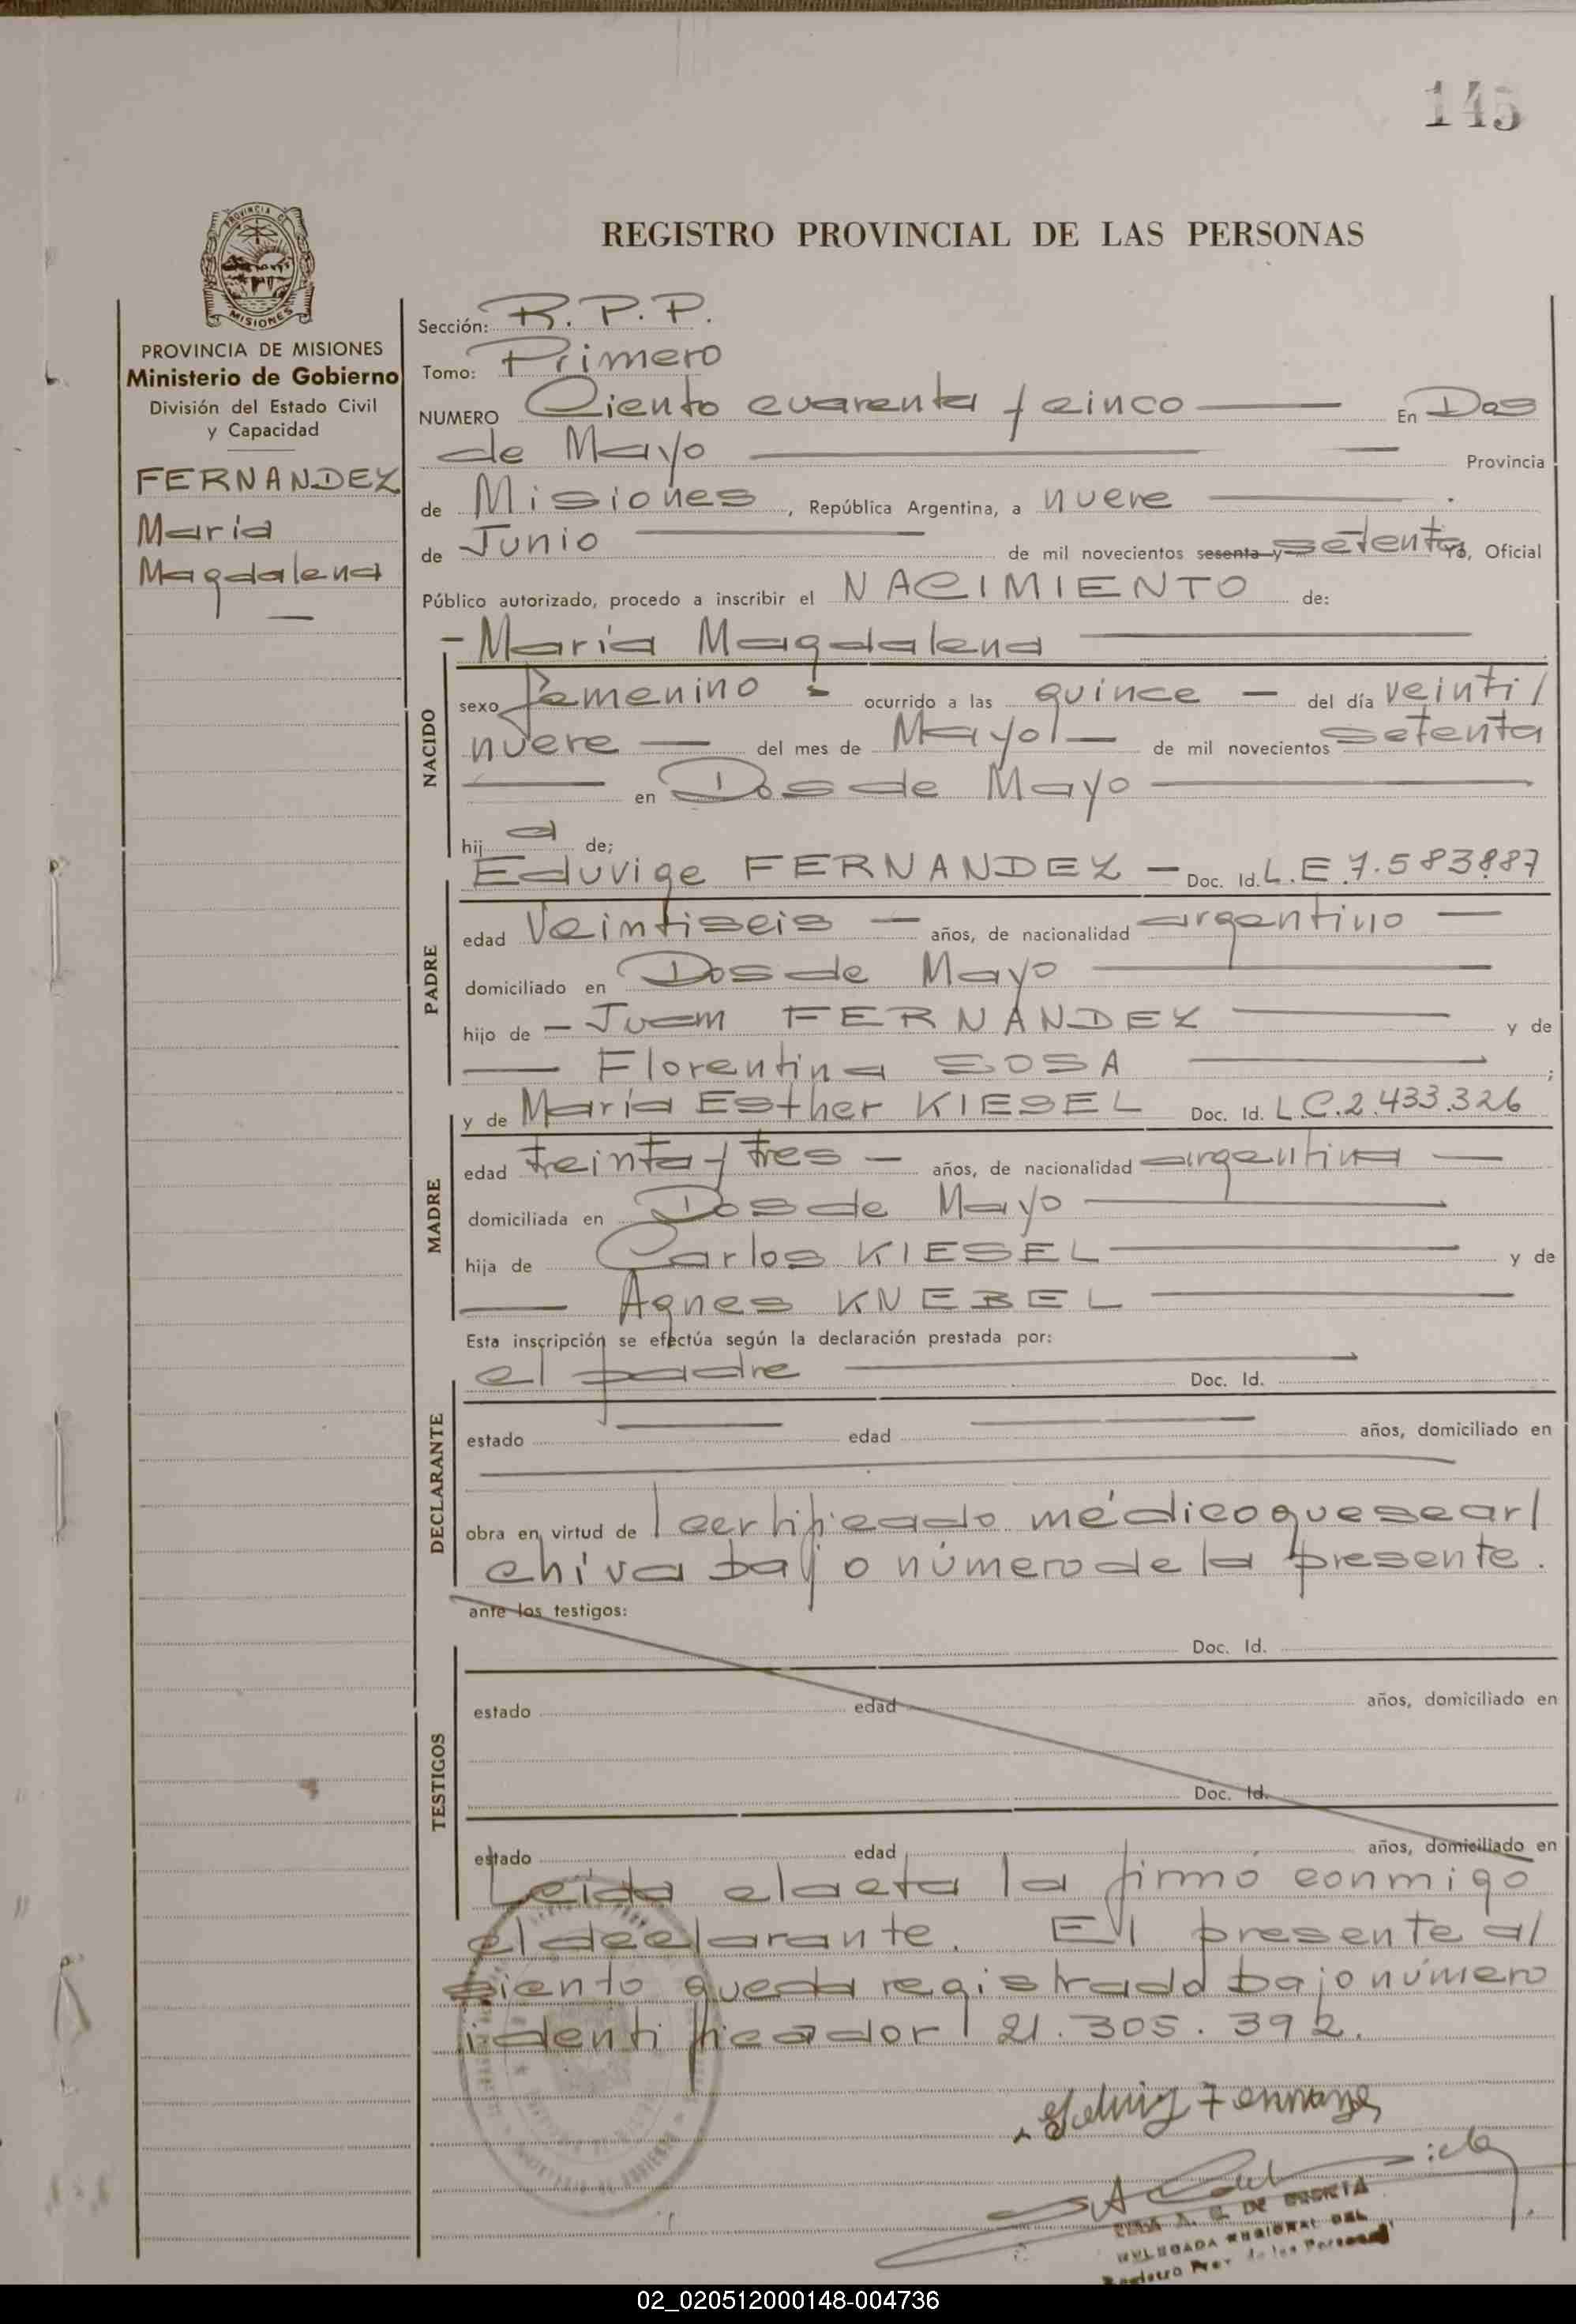 145
PROVINCIA DE
MISIONES
PROVINCIA DE MISIONES
Ministerio de Gobierno
División del Estado Civil
y Capacidad
FERNANDEZ
María
Magdalena
REGISTRO PROVINCIAL DE LAS PERSONAS
Sección: R. P. P.
Tomo: Primero
NUMERO Ciento cuarenta y cinco En Dos
de Mayo Provincia
de Misiones, República Argentina, a nueve
de Junio de mil novecientos sesenta y setenta yo, Oficial
Público autorizado, procedo a inscribir el NACIMIENTO de:
- María Magdalena
NACIDO
sexo femenino - ocurrido a las quince - del día veinti/
nueve - del mes de Mayo - de mil novecientos setenta
en Dos de Mayo
hij a de;
PADRE
Eduvige FERNANDEZ - Doc. Id. L.E.7.583.887
edad veintiseis - años, de nacionalidad argentino -
domiciliado en Dos de Mayo
hijo de - Juan FERNANDEZ y de
Florentina SOSA ;
MADRE
y de María Esther KIESEL Doc. Id. L.C.2.433.326
edad treinta y tres - años, de nacionalidad argentina -
domiciliada en Dos de Mayo
hija de Carlos KIESEL y de
Agnes KNEBEL
Esta inscripción se efectúa según la declaración prestada por:
DECLARANTE
el padre Doc. Id.
estado edad años, domiciliado en
obra en virtud de certificado médico que se ar/
chiva bajo número de la presente.
ante los testigos:
TESTIGOS
Doc. Id.
estado edad años, domiciliado en
Doc. Id.
estado edad años, domiciliado en
Leída el acta la firmó conmigo
el declarante. El presente a/
siento queda registrado bajo número
identificador 21.305.392.
DELEGADA REGIONAL DEL
Registro Prov. de las Personas
02_020512000148-004736